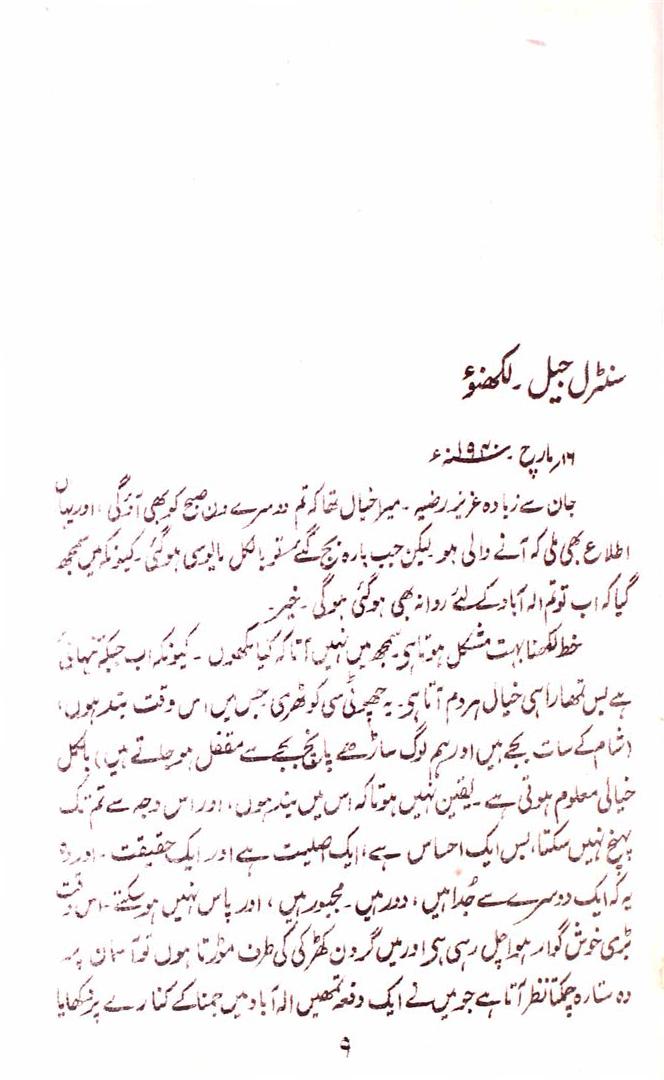 سنٹرل جیل ۔ لکھنؤ
۱۶؍ مارچ ۔ ۱۹۴۰ء
جان سے زیادہ عزیز رضیہ ۔ میرا خیال تھا کہ تم دوسرے دن صبح کو بھی آؤگی ، اور یہاں
اطلاع بھی ملی کہ آنے والی ہو لیکن جب بارہ بج گئے تو بالکل مایوسی ہوگئی ۔ کیونکہ میں سمجھ
گیا کہ اب تو تم الہ آباد کے لئے روانہ بھی ہوگئی ہوگی ۔ خیر ۔
خط لکھنا بہت مشکل ہوتا ہی سمجھ میں نہیں آتا کہ کیا لکھوں ۔ کیونکہ اب جبکہ تنہائی
ہے بس تمھارا ہی خیال ہر دم آتا ہی ۔ یہ چھوٹی سی کوٹھری جس میں اس وقت بند ہوں ،
(شام کے سات بجے ہیں اور ہم لوگ ساڑھے پانچ بجے سے مقفل ہو جاتے ہیں) بالکل
خیالی معلوم ہوتی ہے ۔ یقین نہیں ہوتا کہ اس میں بند ہوں ، اور اس وجہ سے تم تک
پہنچ نہیں سکتا ، بس ایک احساس ہے ، ایک اصلیت ہے اور ایک حقیقت ۔ اور وہ
یہ کہ ایک دوسرے سے جُدا ہیں ، دور ہیں ۔ مجبور ہیں ، اور پاس نہیں ہو سکتے ۔ اس وقت
بڑی خوش گوار ہوا چل رہی ہی اور میں گردن کھڑکی کی طرف موڑتا ہوں تو آسمان پہ
وہ ستارہ چمکتا نظر آتا ہے جو میں نے ایک دفعہ تمھیں الہ آباد میں جمنا کے کنارے پر دکھایا
۹